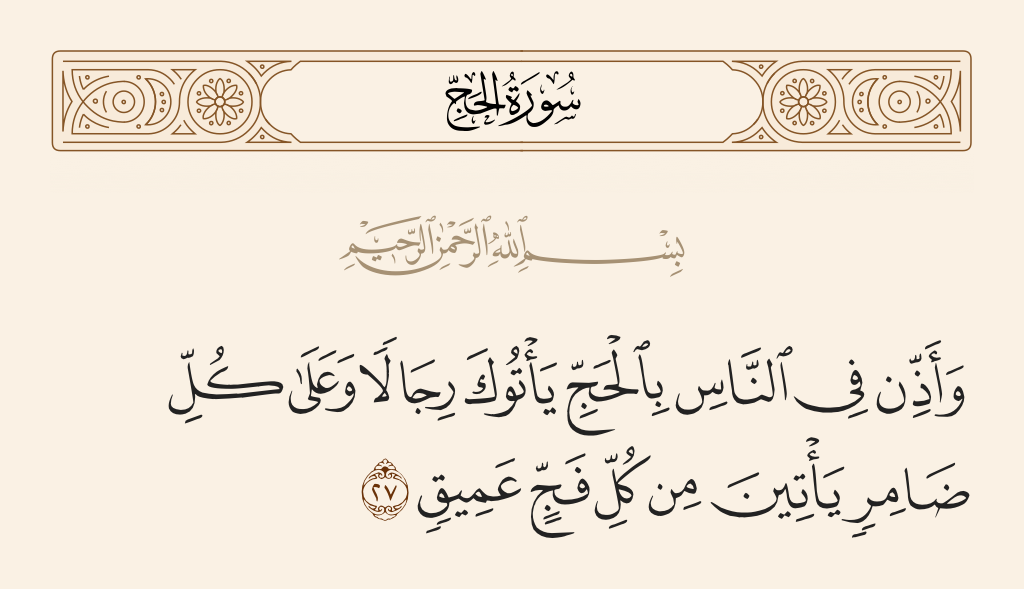 سُورَةُ الحَجِّ
بِسْمِ ٱللَّهِ ٱلرَّحْمَٰنِ ٱلرَّحِيمِ
وَأَذِّن فِى ٱلنَّاسِ بِٱلْحَجِّ يَأْتُوكَ رِجَالًا وَعَلَىٰ كُلِّ
ضَامِرٍ يَأْتِينَ مِن كُلِّ فَجٍّ عَمِيقٍ ٢٧